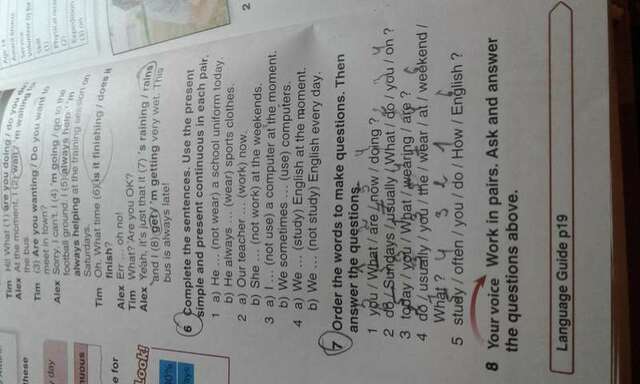 Tim Hi! What (1) are you doing / do you do
At the moment, I (2) wait / 'm waiting for
the bus.
Tim (3) Are you wanting / Do you want to
meet in town?
Alex Sorry, I can't. I (4) 'm going / go to the
football ground. I (5) always help / 'm
always helping at the training session on
Saturdays.
Tim Oh. What time (6) is it finishing / does it
finish?
Alex Err ... oh no!
Tim What? Are you OK?
Alex Yeah, it's just that it (7) 's raining / rains
and I (8) get / 'm getting very wet. This
bus is always late!
6 Complete the sentences. Use the present
simple and present continuous in each pair.
1 a) He ... (not wear) a school uniform today.
b) He always ... (wear) sports clothes.
2 a) Our teacher ... (work) now.
b) She ... (not work) at the weekends.
3 a) I ... (not use) a computer at the moment.
b) We sometimes ... (use) computers.
4 a) We ... (study) English at the moment.
b) We ... (not study) English every day.
7 Order the words to make questions. Then
answer the questions.
1 you / What / are / now / doing ?
2 do / Sundays / usually / What / do / you / on ?
3 today / you / What / wearing / are ?
4 do / usually / you / the / wear / at / weekend /
What ?
5 study / often / you / do / How / English ?
8 Your voice Work in pairs. Ask and answer
the questions above.
Language Guide p19
Look!
2